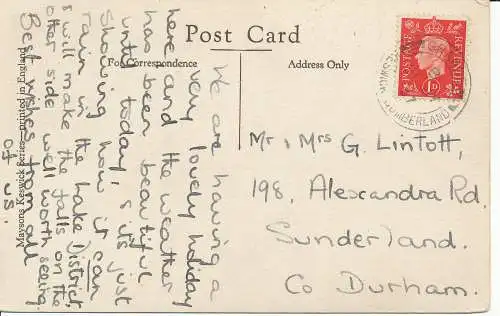 Post Card
For Correspondence
Address Only
Maysons Keswick Series—printed in England
We are having a
very lovely holiday
here and the weather
has been beautiful
until today, & it's just
showing how it can
rain in the Lake District,
& will make the falls on the
other side well worth seeing.
Best wishes from all
of us.
POSTAGE
REVENUE
1D
CUMBERLAND
Mr. Mrs G. Lintott,
198, Alexandra Rd
Sunderland.
Co Durham.